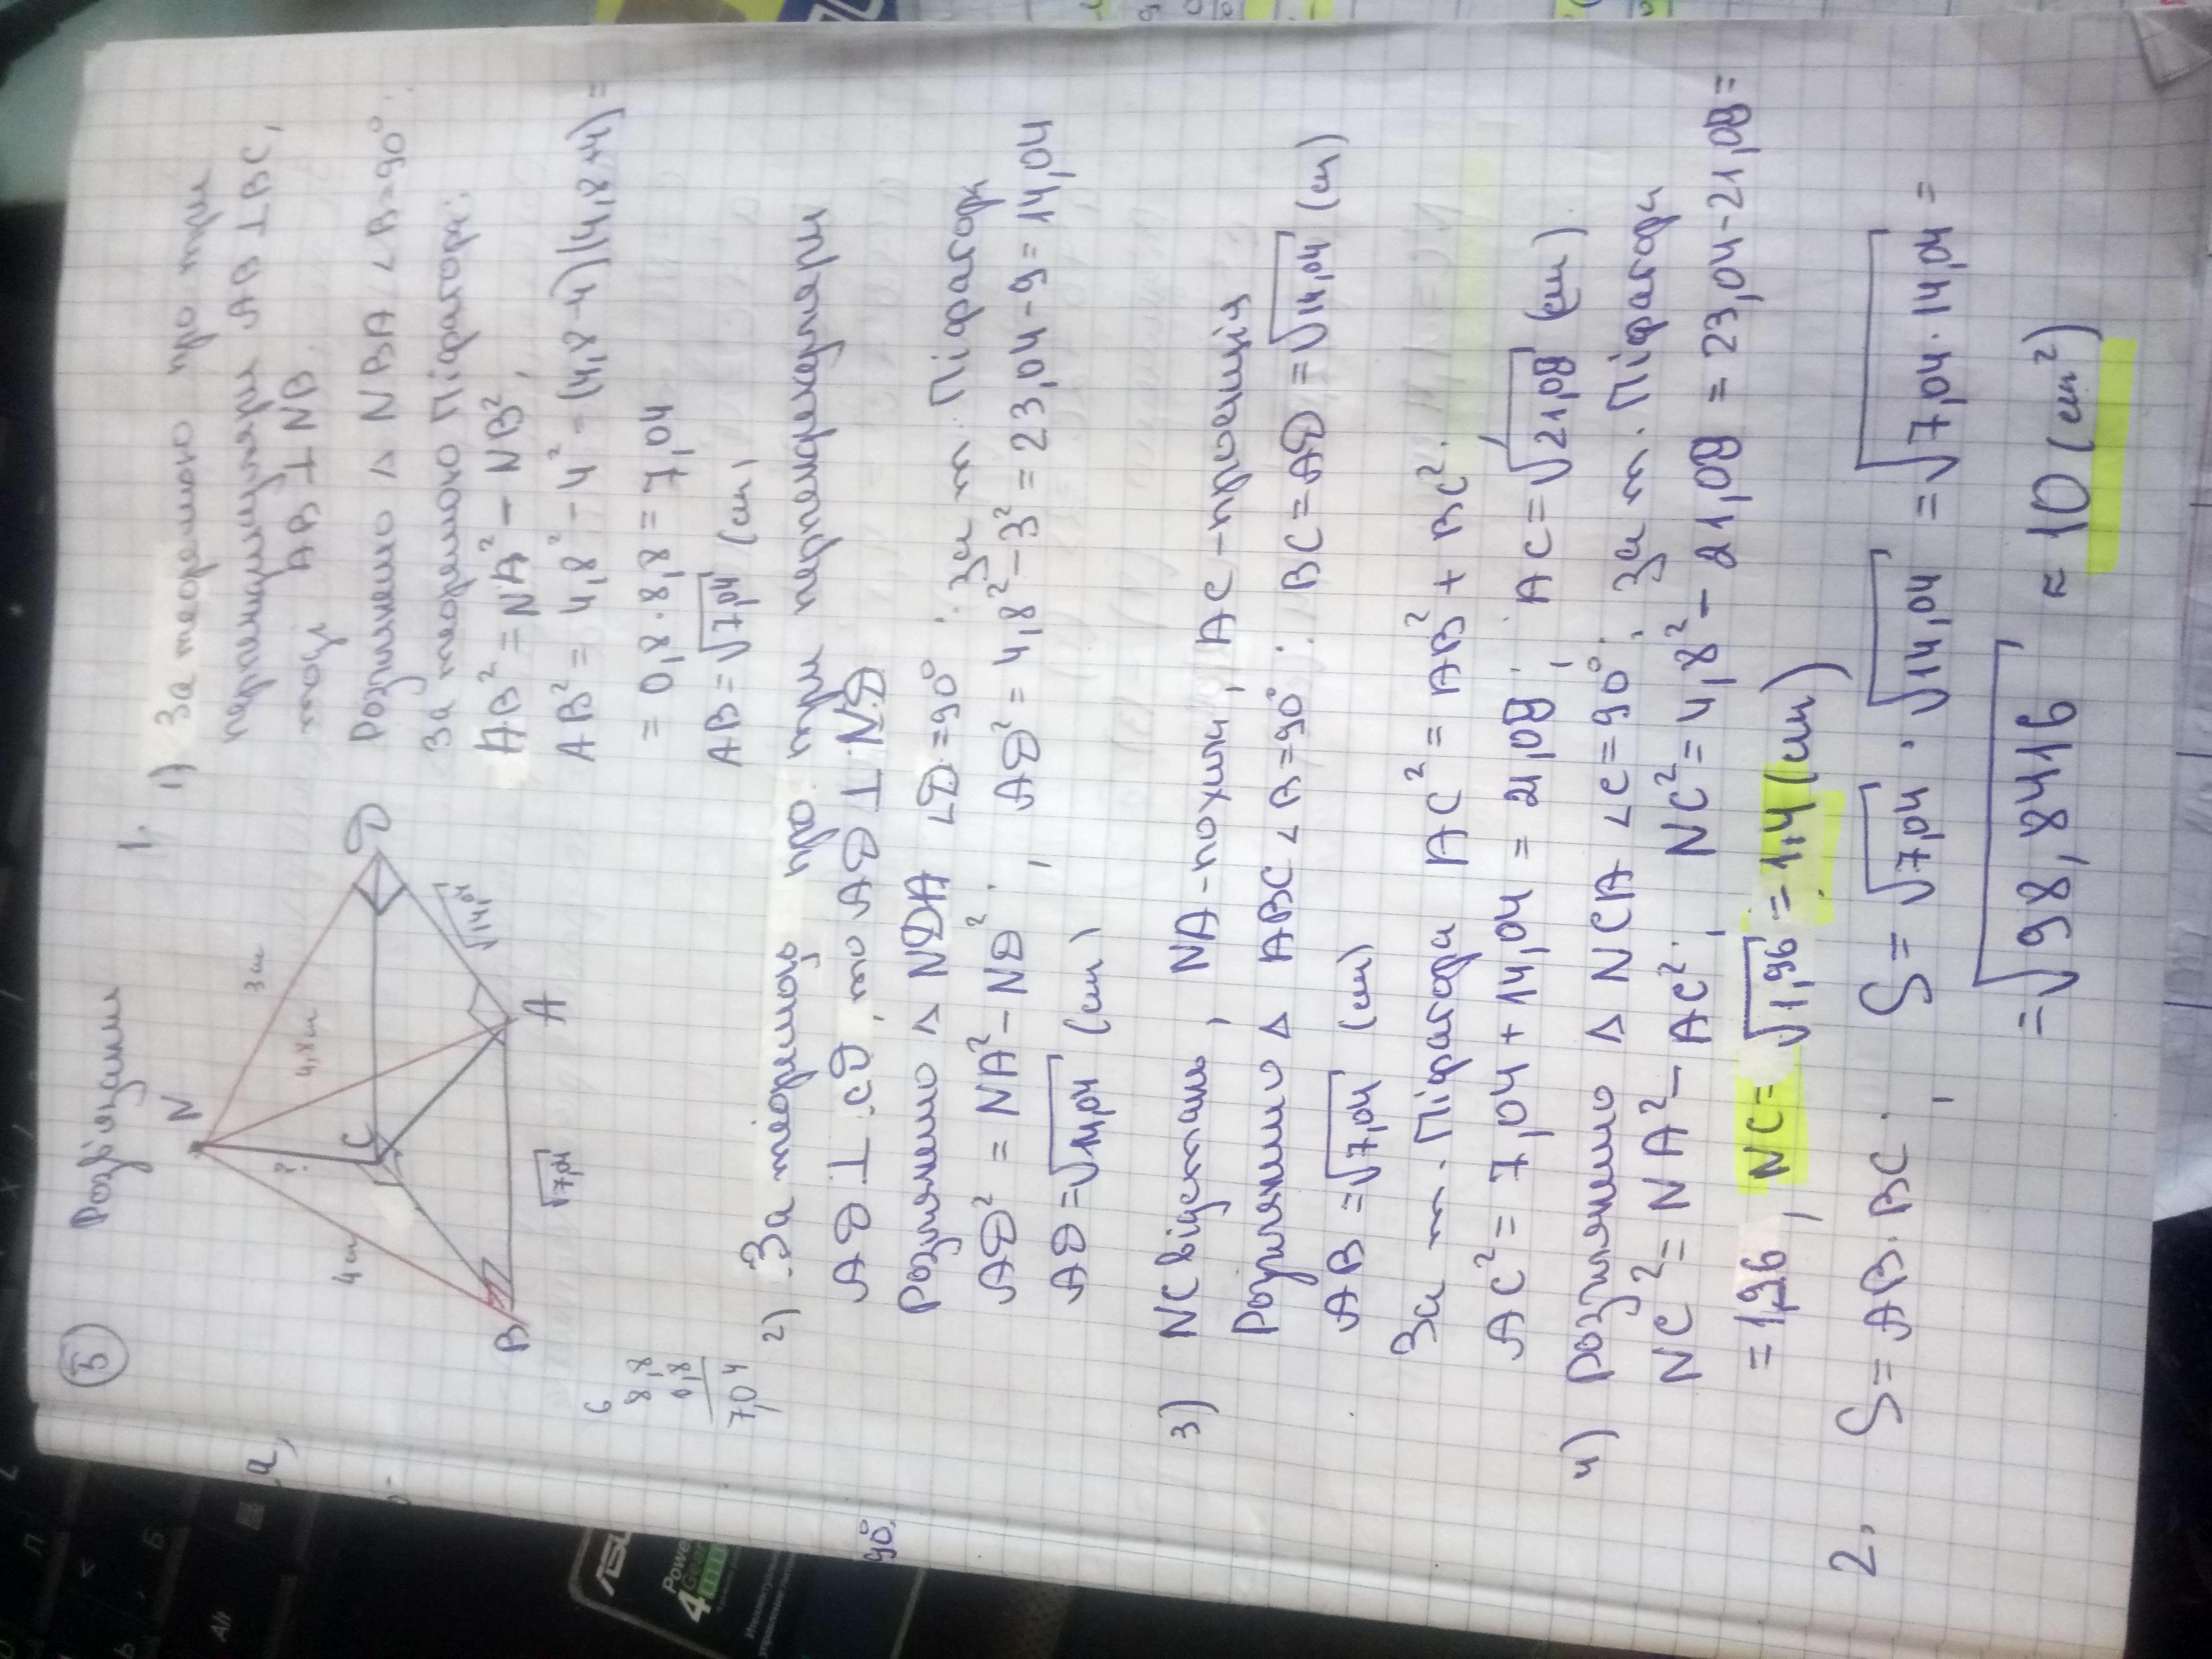 5
Розв'язання
N
3 см
4,8 см
?
4 см
C
D
√14,04
A
B
√7,04
6
8,8
0,8
7,04
1.
1) За теоремою про три
перпендикуляри AB ⊥ BC,
тоді AB ⊥ NB.
Розглянемо △ NBA ∠B=90°.
За теоремою Піфагора:
AB² = NA² - NB²,
AB² = 4,8² - 4² = (4,8-4)(4,8+4) =
= 0,8 · 8,8 = 7,04
AB = √7,04 (см)
2) За теоремою про три перпендикуляри
AD ⊥ CD, то AD ⊥ ND
Розглянемо △ NDA ∠D=90°. За т. Піфагора
AD² = NA² - ND², AD² = 4,8² - 3² = 23,04 - 9 = 14,04
AD = √14,04 (см)
3) NC відстань, NA - похила, AC - проекція
Розглянемо △ ABC ∠B=90°. BC = AD = √14,04 (см)
AB = √7,04 (см)
За т. Піфагора AC² = AB² + BC².
AC² = 7,04 + 14,04 = 21,08; AC = √21,08 (см)
4) Розглянемо △ NCA ∠C=90°. За т. Піфагора
NC² = NA² - AC²; NC² = 4,8² - 21,08 = 23,04 - 21,08 =
= 1,96, NC = √1,96 = 1,4 (см)
2. S = AB · BC; S = √7,04 · √14,04 = √7,04 · 14,04 =
= √98,8416 ≈ 10 (см²)
а,
90°.
П
<
Б
Ь
Alt
ASU
4
Power